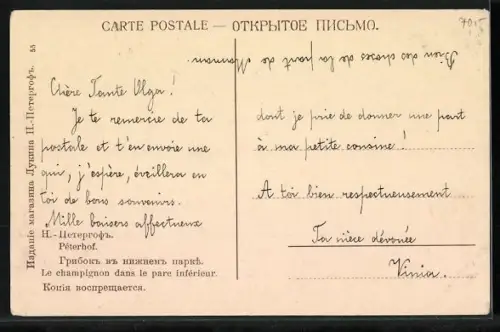 CARTE POSTALE — ОТКРЫТОЕ ПИСЬМО.
Bien des choses de la part de Maman
Chère Tante Olga!
Je te remercie de ta
postale et t'en envoie une
qui, j'espère, éveillera en
toi de bons souvenirs.
Mille baisers affectueux
dont je prie de donner une part
à ma petite cousine!
A toi bien respectueusement
Ta nièce dévouée
Vinia.
Н.-Петергофъ.
Péterhof.
Грибокъ въ нижнемъ паркѣ.
Le champignon dans le parc inférieur.
Копія воспрещается.
Изданіе магазина Лукина Н.-Петергофъ. 55